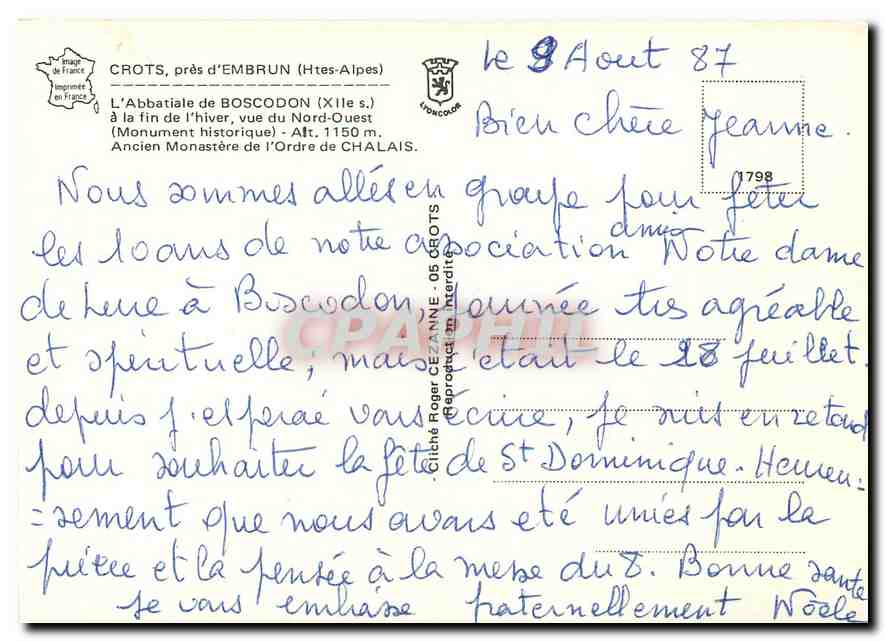 Image
de France
Imprimée
en France
CROTS, près d'EMBRUN (Htes-Alpes)
L'Abbatiale de BOSCODON (XIIe s.)
à la fin de l'hiver, vue du Nord-Ouest
(Monument historique) - Alt. 1150 m.
Ancien Monastère de l'Ordre de CHALAIS.
LYONCOLOR
le 9 Aout 87
Bien chère Jeanne.
1798
Nous sommes allés en groupe pour fêter
les 10 ans de notre association amis Notre dame
de Lure à Boscodon, journée très agréable
et spirituelle; mais c'était le 28 juillet.
depuis j'esperai vous écrire, je suis en retard
pour souhaiter la fête de St Dominique. Heureu=
=sement que nous avons eté unies par la
prière et la pensée à la messe du 8. Bonne santé
je vous embrasse fraternellement Noële
Cliché Roger CEZANNE - 05 CROTS
Reproduction interdite
CPAPHIL